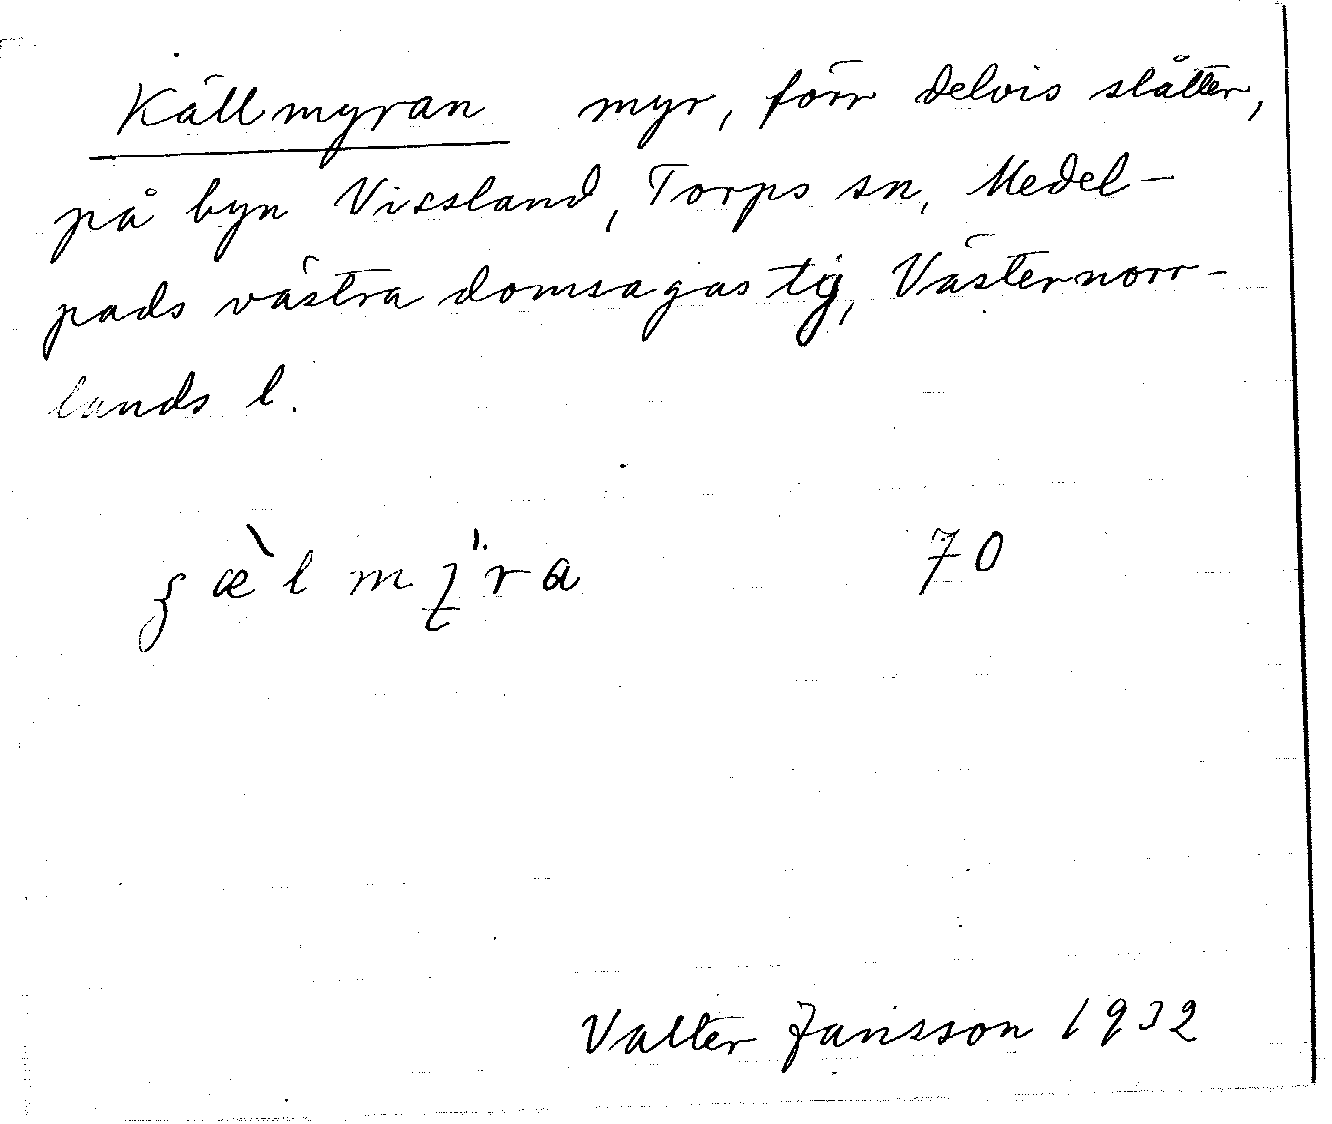 Källmyran myr, förr delvis slåtter,
på byn Vissland, Torps sn, Medel-
pads västra domsagas tg, Västernorr-
lands l.
70
Valter Jansson 1932